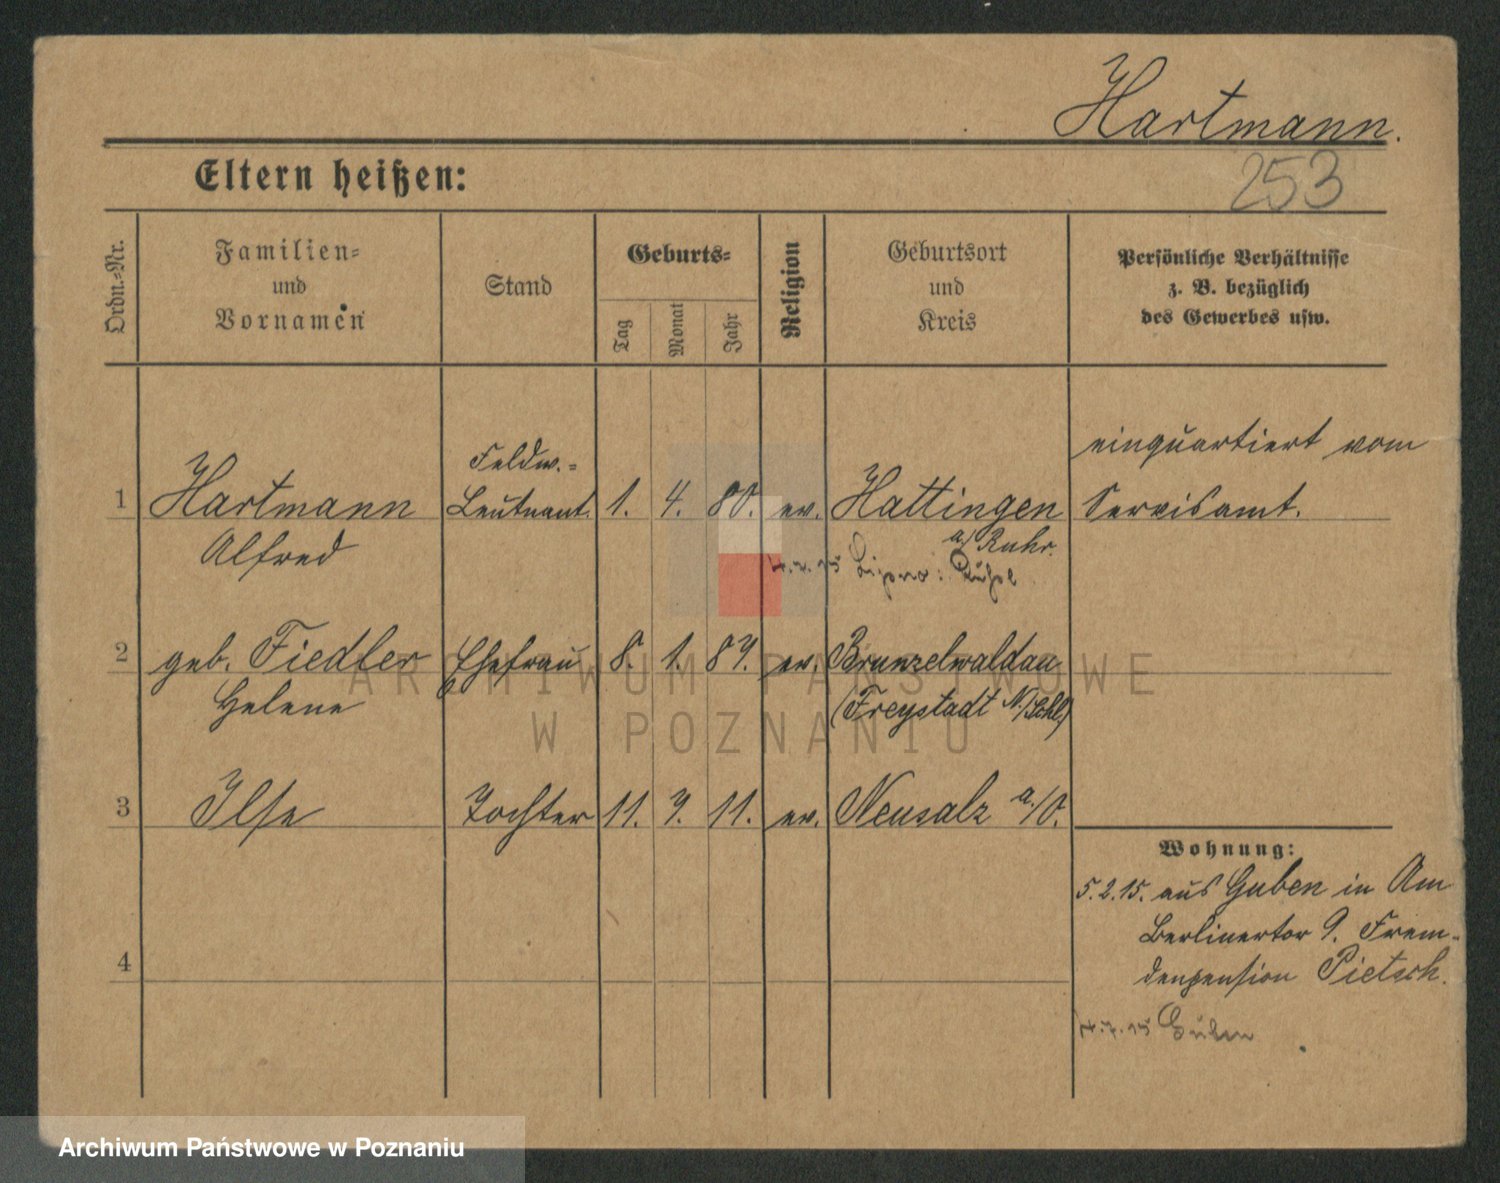 Hartmann.
253
Eltern heißen:
Ordn.-Nr.
Familien-
und
Vornamen
Stand
Geburts-
Tag
Monat
Jahr
Religion
Geburtsort
und
Kreis
Persönliche Verhältnisse
z. B. bezüglich
des Gewerbes usw.
1 Hartmann Feldw.- Leutnant. 1. 4. 80. ev. Hattingen
Alfred a/ Ruhr.
einquartiert vom
Servisamt.
2 geb. Fiedler Ehefrau 8. 1. 87. ev. Brunzelwaldau
Helene (Freystadt N/Schl)
3 Ilse Tochter 11. 7. 11. ev. Neusalz a./O.
4
Wohnung:
5.2.15. aus Guben in Am
Berlinertor 9. Frem-
denpension Pietsch.
15 Guben
ARCHIWUM PAŃSTWOWE
W POZNANIU
Archiwum Państwowe w Poznaniu